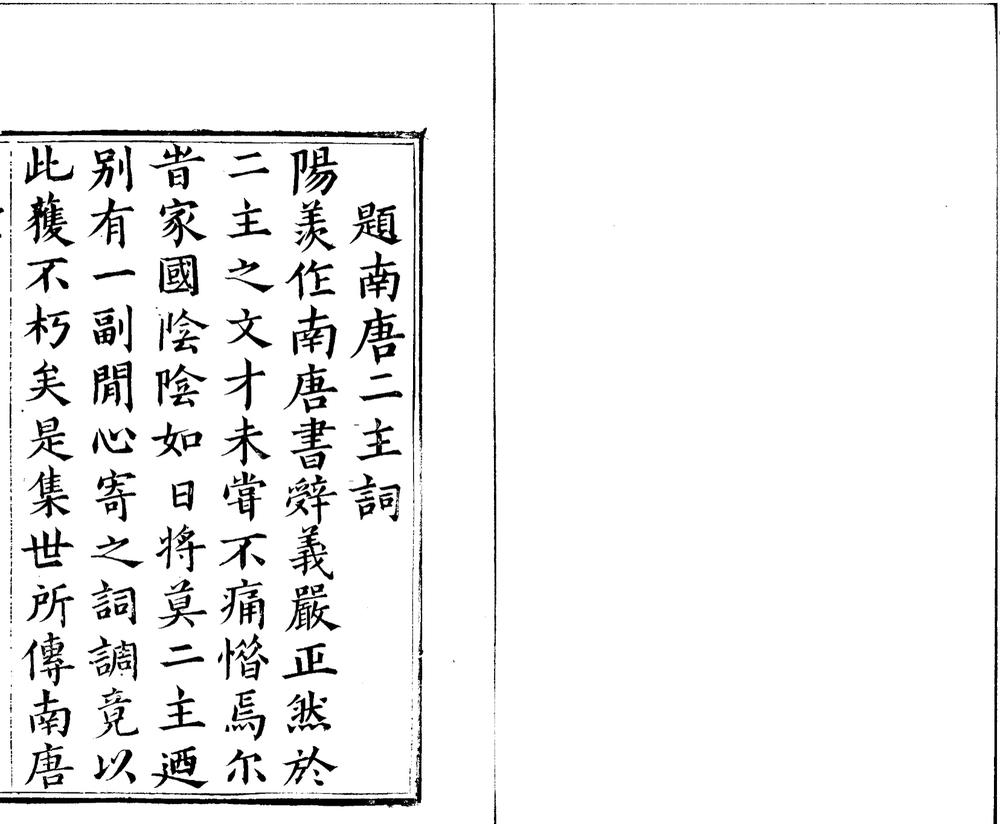 題南唐二主詞
陽羨作南唐書辭義嚴正然於
二主之文才未甞不痛惜焉尔
旹家國陰陰如日將莫二主迺
别有一副閒心寄之詞調竟以
此獲不朽矣是集世所傳南唐